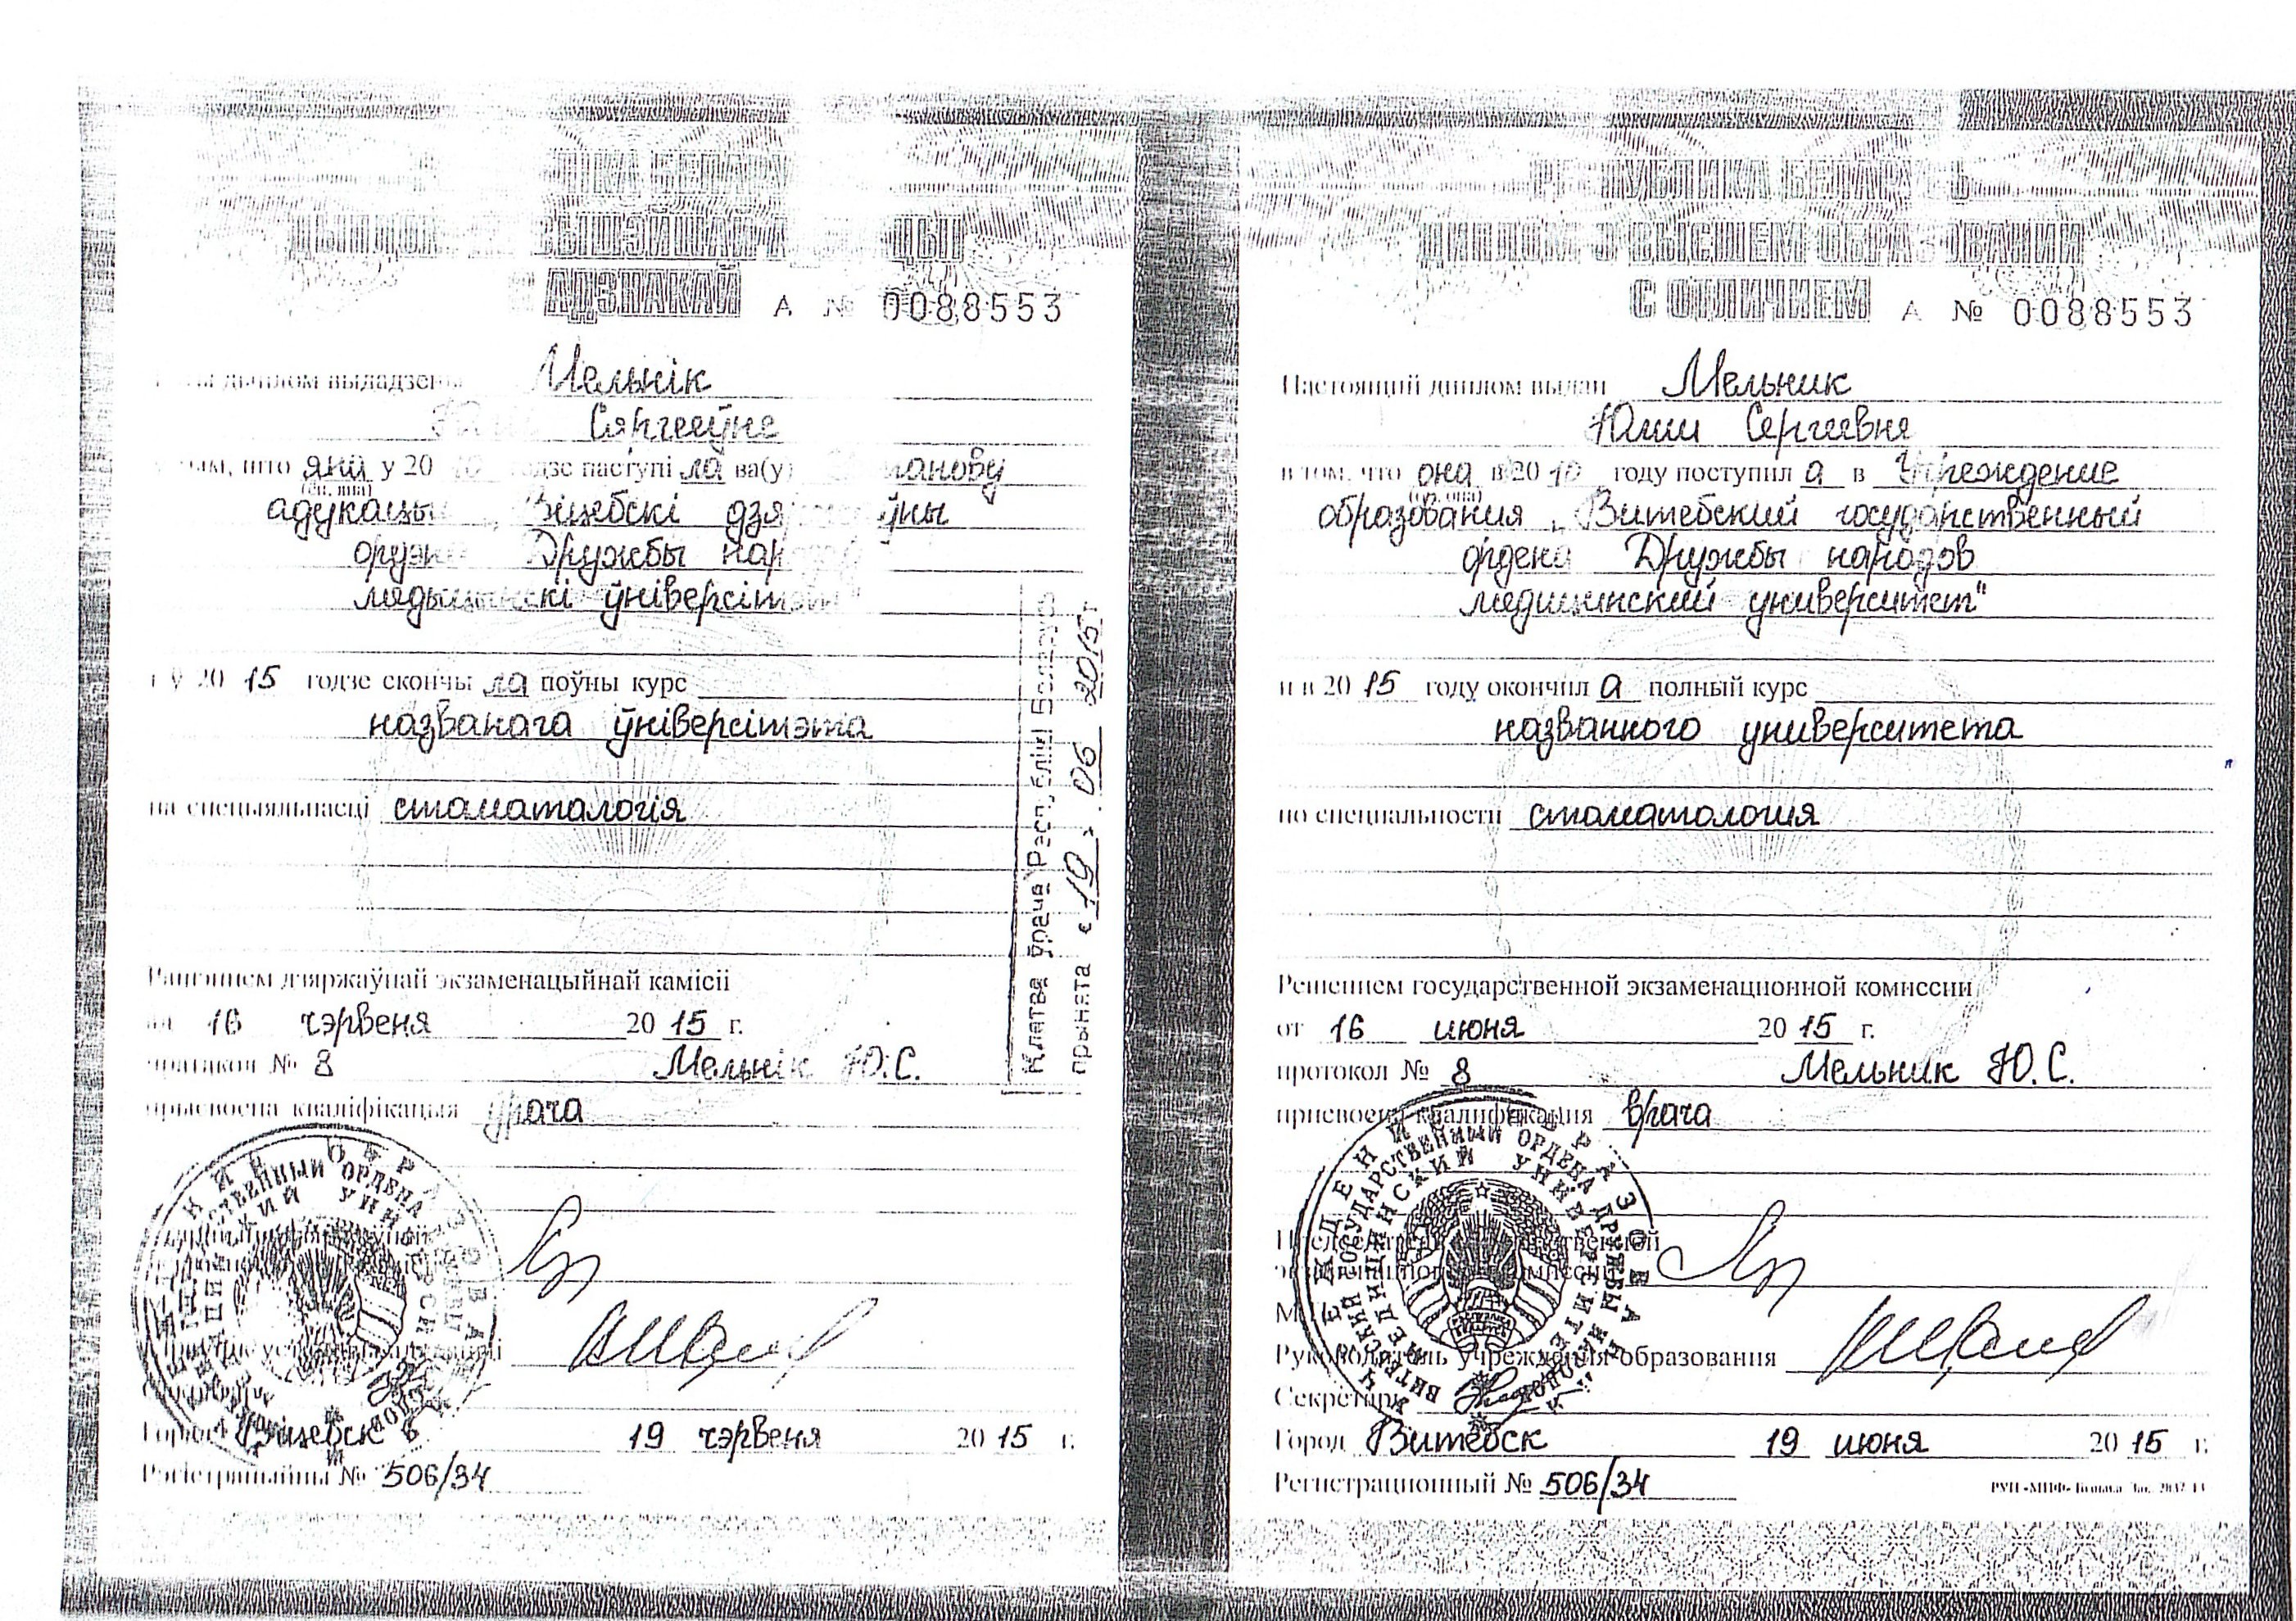 АДЗНАКАЙ А № 0088553
дыплом выдадзены Мельнік
Сяргееўне
што яна у 20 10 годзе паступі ла ва(у)
(ён, яна)
адукацыі „Віцебскі
Дружбы
медыцынскі ўніверсітэт"
і ў 20 15 годзе скончы ла поўны курс
названага ўніверсітэта
па спецыяльнасці стаматалогія
Рашэннем дзяржаўнай экзаменацыйнай камісіі
ад 16 чэрвеня 20 15 г.
пратакол № 8 Мельнік Ю.С.
прысвоена кваліфікацыя ўрача
Горад Віцебск 19 чэрвеня 20 15 г.
Рэгістрацыйны № 506/34
Клятва ўрача Рэспублікі Беларусь
прынята «19» 06 2015 г
РЕСПУБЛИКА БЕЛАРУСЬ
ДИПЛОМ О ВЫСШЕМ ОБРАЗОВАНИИ
С ОТЛИЧИЕМ А № 0088553
Настоящий диплом выдан Мельник
Юлии Сергеевне
в том, что она в 20 10 году поступил а в Учреждение
(он, она)
образования „Витебский государственный
ордена Дружбы народов
медицинский университет"
и в 20 15 году окончил а полный курс
названного университета
по специальности стоматология
Решением государственной экзаменационной комиссии
от 16 июня 20 15 г.
протокол № 8 Мельник Ю.С.
присвоена квалификация врача
Руководитель учреждения образования
Секретарь
Город Витебск 19 июня 20 15 г.
Регистрационный № 506/34